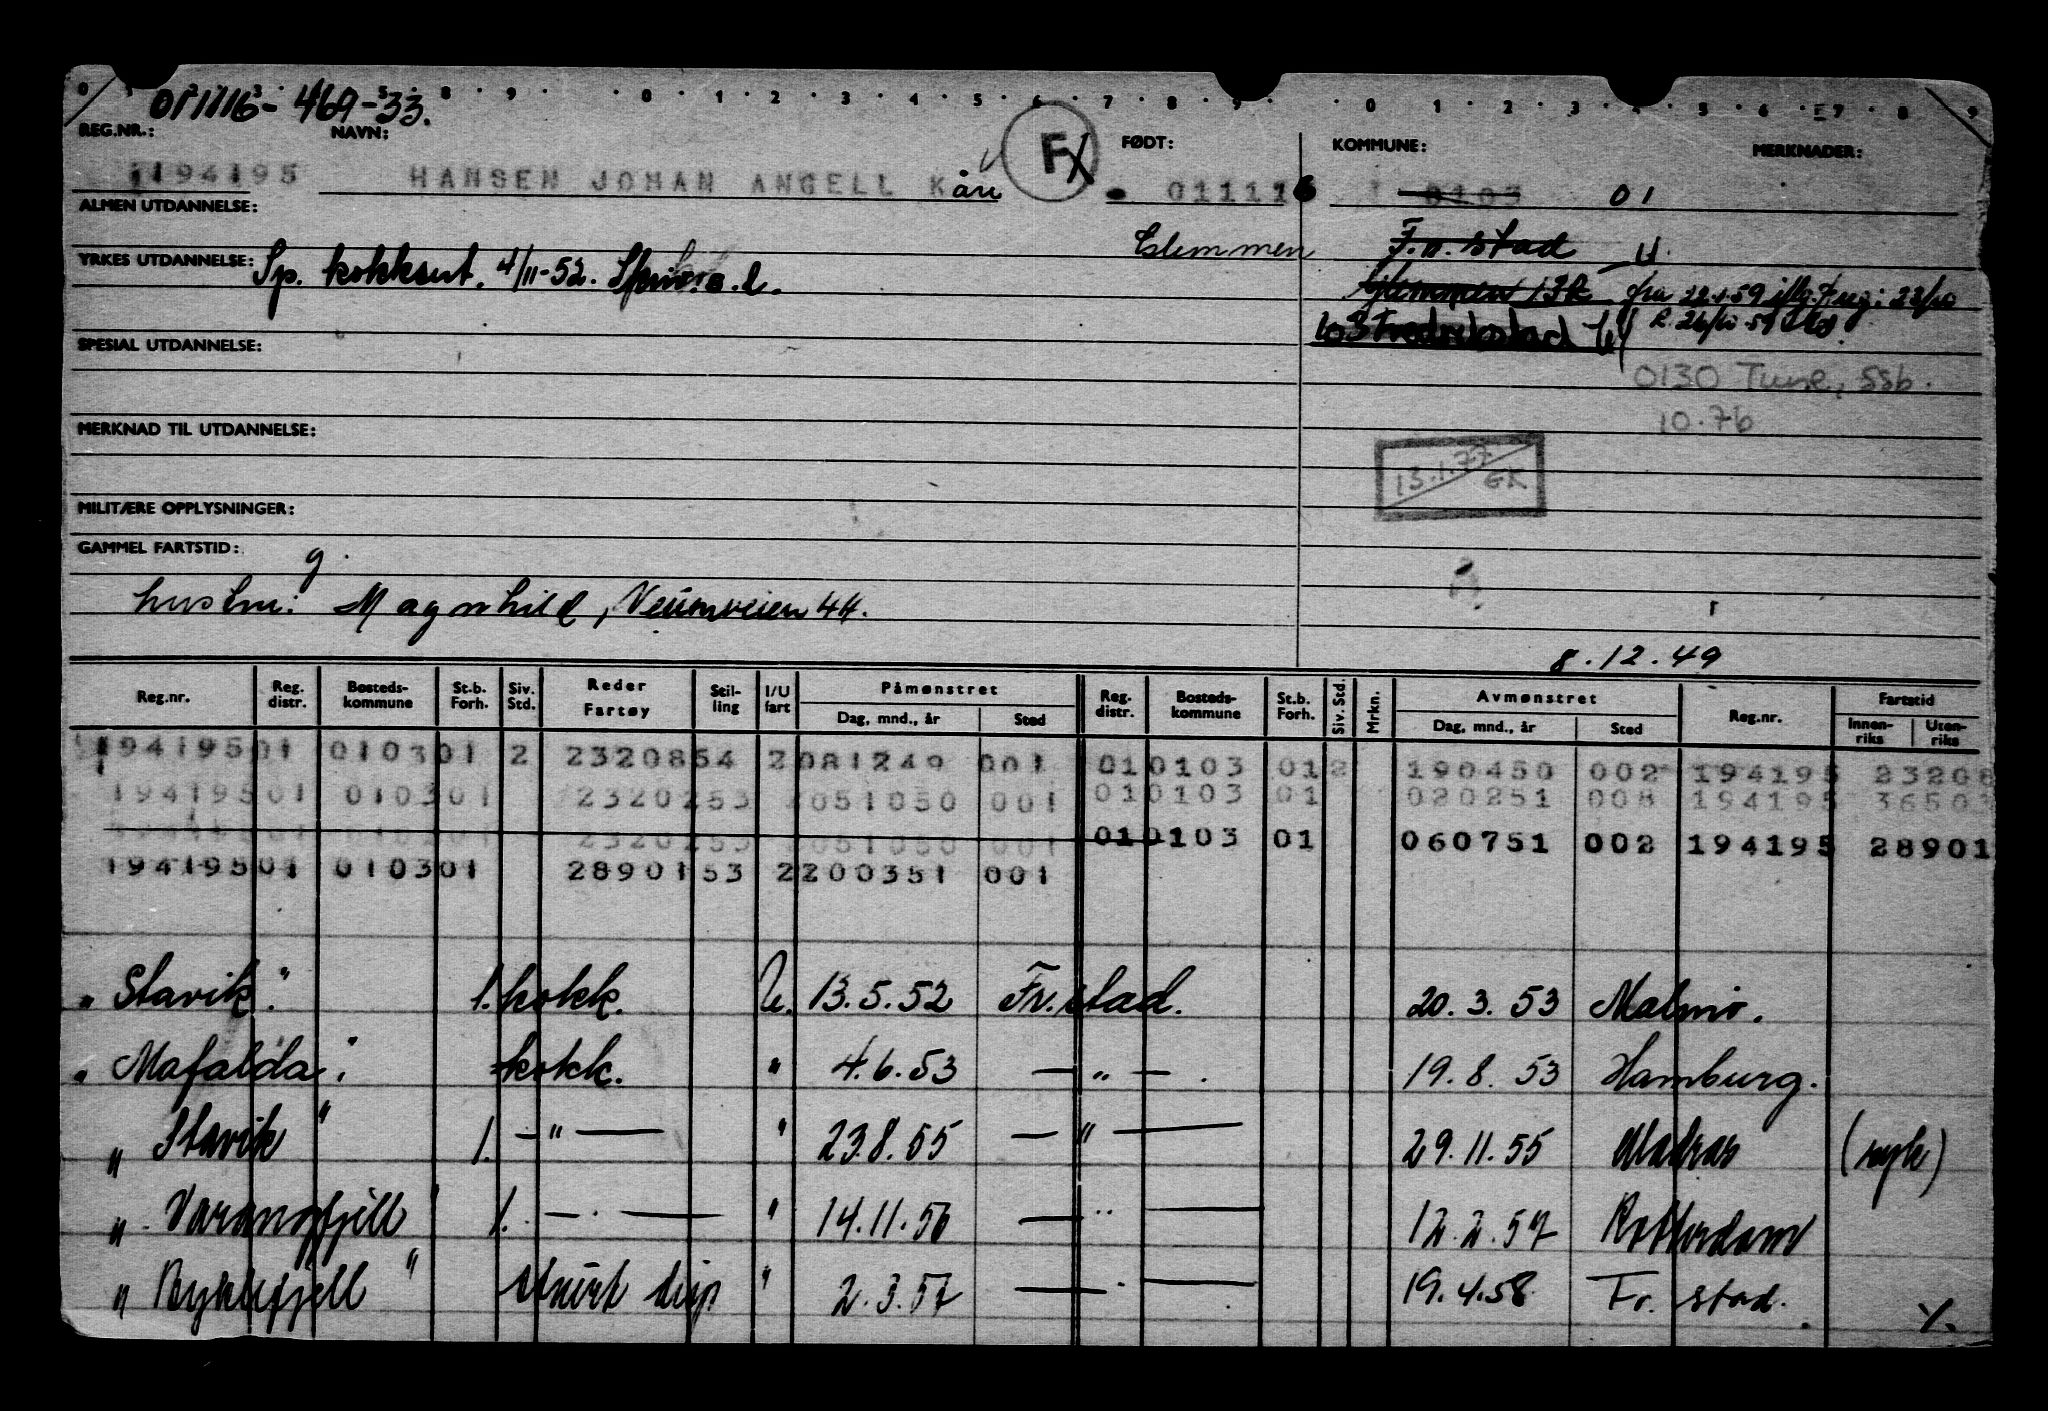 011116-469-33.
REG.NR.: NAVN: FØDT: KOMMUNE: MERKNADER:
194195 HANSEN JOHAN ANGELL Kåre Fx 011116 0103 01
ALMEN UTDANNELSE:
Glemmen Fr.stad U.
YRKES UTDANNELSE: Sp. kokksert. 4/11-52.
Glemmen 132 fra 22.1.59
103 Fredrikstad
SPESIAL UTDANNELSE:
0130 Tune, ssb.
10.76
MERKNAD TIL UTDANNELSE:
13.1.77 GK
MILITÆRE OPPLYSNINGER:
GAMMEL FARTSTID: g.
hustru: Magnhild, Veumveien 44.
8.12.49
Reg.nr. Reg. distr. Bosteds- kommune St.b. Forh. Siv. Std. Reder Fartøy Stil- ling I/U fart Påmønstret Dag, mnd., år Sted Reg. distr. Bosteds- kommune St.b. Forh. Siv. Std. Mrkn. Avmønstret Dag, mnd., år Sted Reg.nr. Fartstid Innen- riks Uten- riks
194195 01 0103 01 2 2320854 2 081249 001 01 0103 01 2 190450 002 194195 23208
194195 01 0103 01 2320253 2 051050 001 01 0103 01 020251 008 194195 36503
194195 01 0103 01 2320253 2 051050 001 01 0103 01 060751 002 194195 28901
194195 01 0103 01 2890153 2 200351 001
" Stavik." 1. kokk. U. 13.5.52 Fr.stad. 20.3.53 Malmø.
" Mafalda." kokk. " 4.6.53 — " — . 19.8.53 Hamburg.
" Stavik " 1. — " — " 23.8.55 — " — 29.11.55 Madras (syk)
" Varangfjell " 1. — . — " 14.11.56 — " — 12.2.57 Rotterdam
" Rykkefjell " stuert " 2.3.57 — " — 19.4.58 Fr.stad. ./.